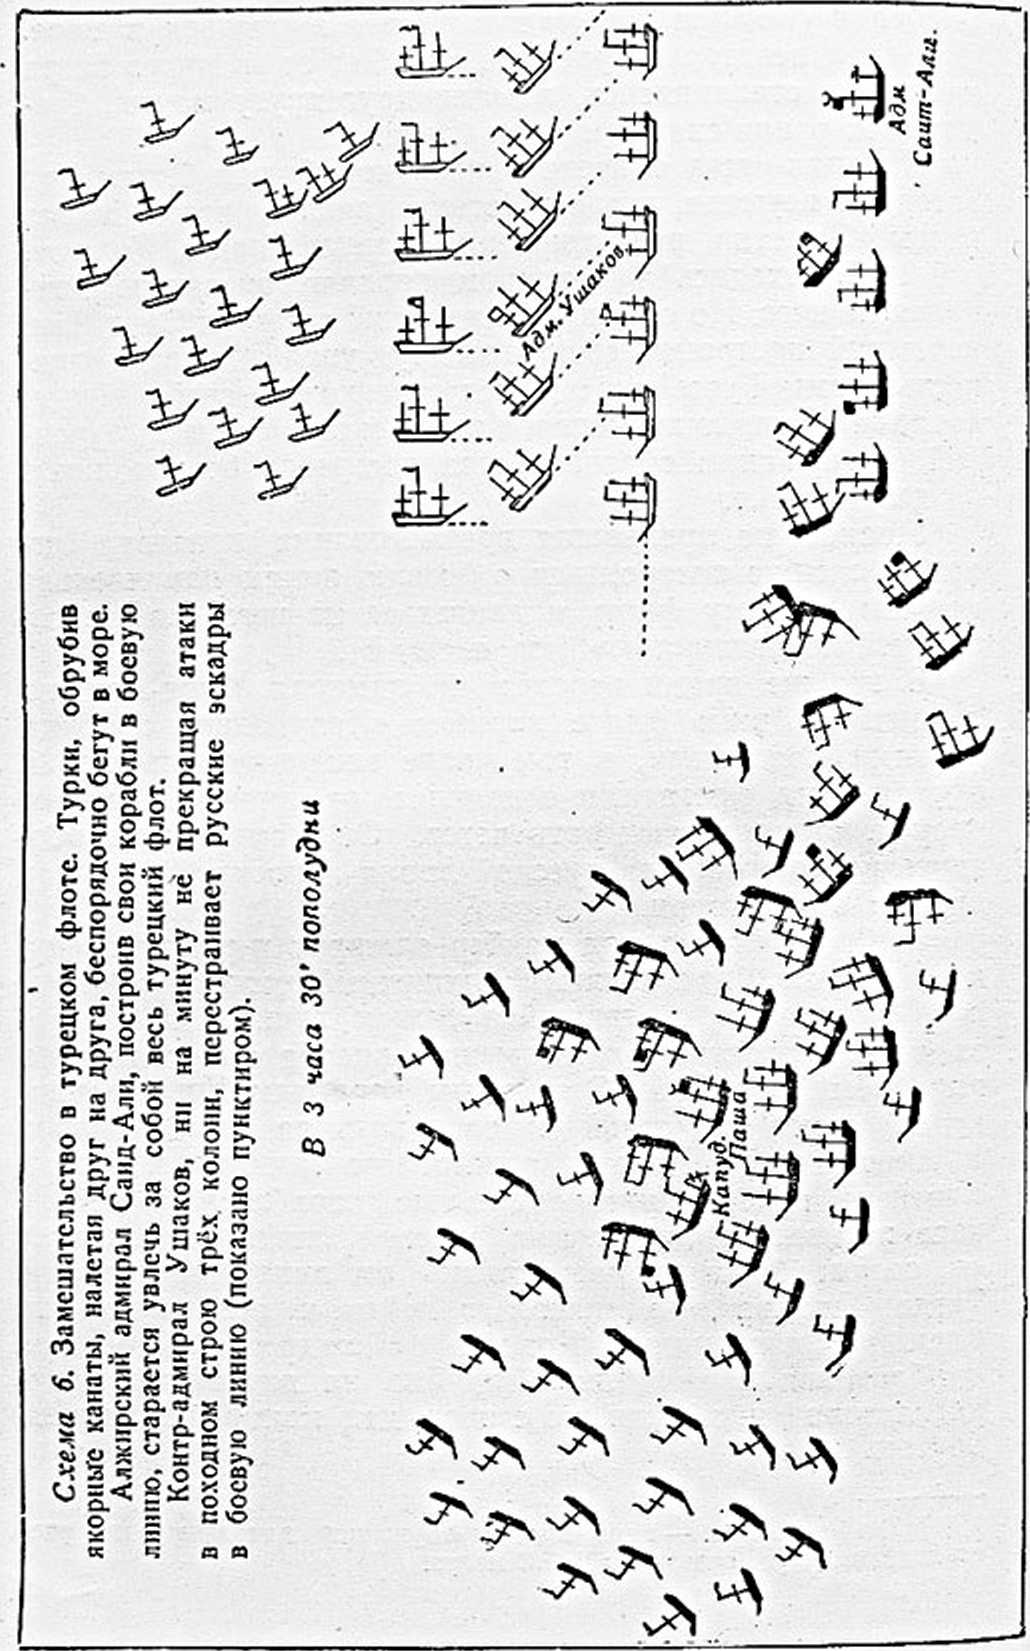 Схема 6. Замешательство в турецком флоте. Турки, обрубив
якорные канаты, налетая друг на друга, беспорядочно бегут в море.
Алжирский адмирал Саид-Али, построив свои корабли в боевую
линию, старается увлечь за собой весь турецкий флот.
Контр-адмирал Ушаков, ни на минуту не прекращая атаки
в походном строю трёх колонн, перестраивает русские эскадры
в боевую линию (показано пунктиром).
В 3 часа 30' пополудни
Адм. Ушаков
Адм
Саит-Алг.
Капуд.
Паша